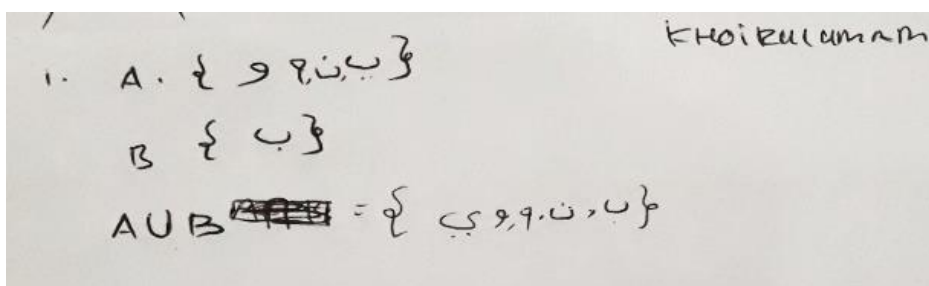 KHOIRULUMAM
1. A. { ب, ن, و و }
B { ب }
A U B = { ب, ن, و, و ي }